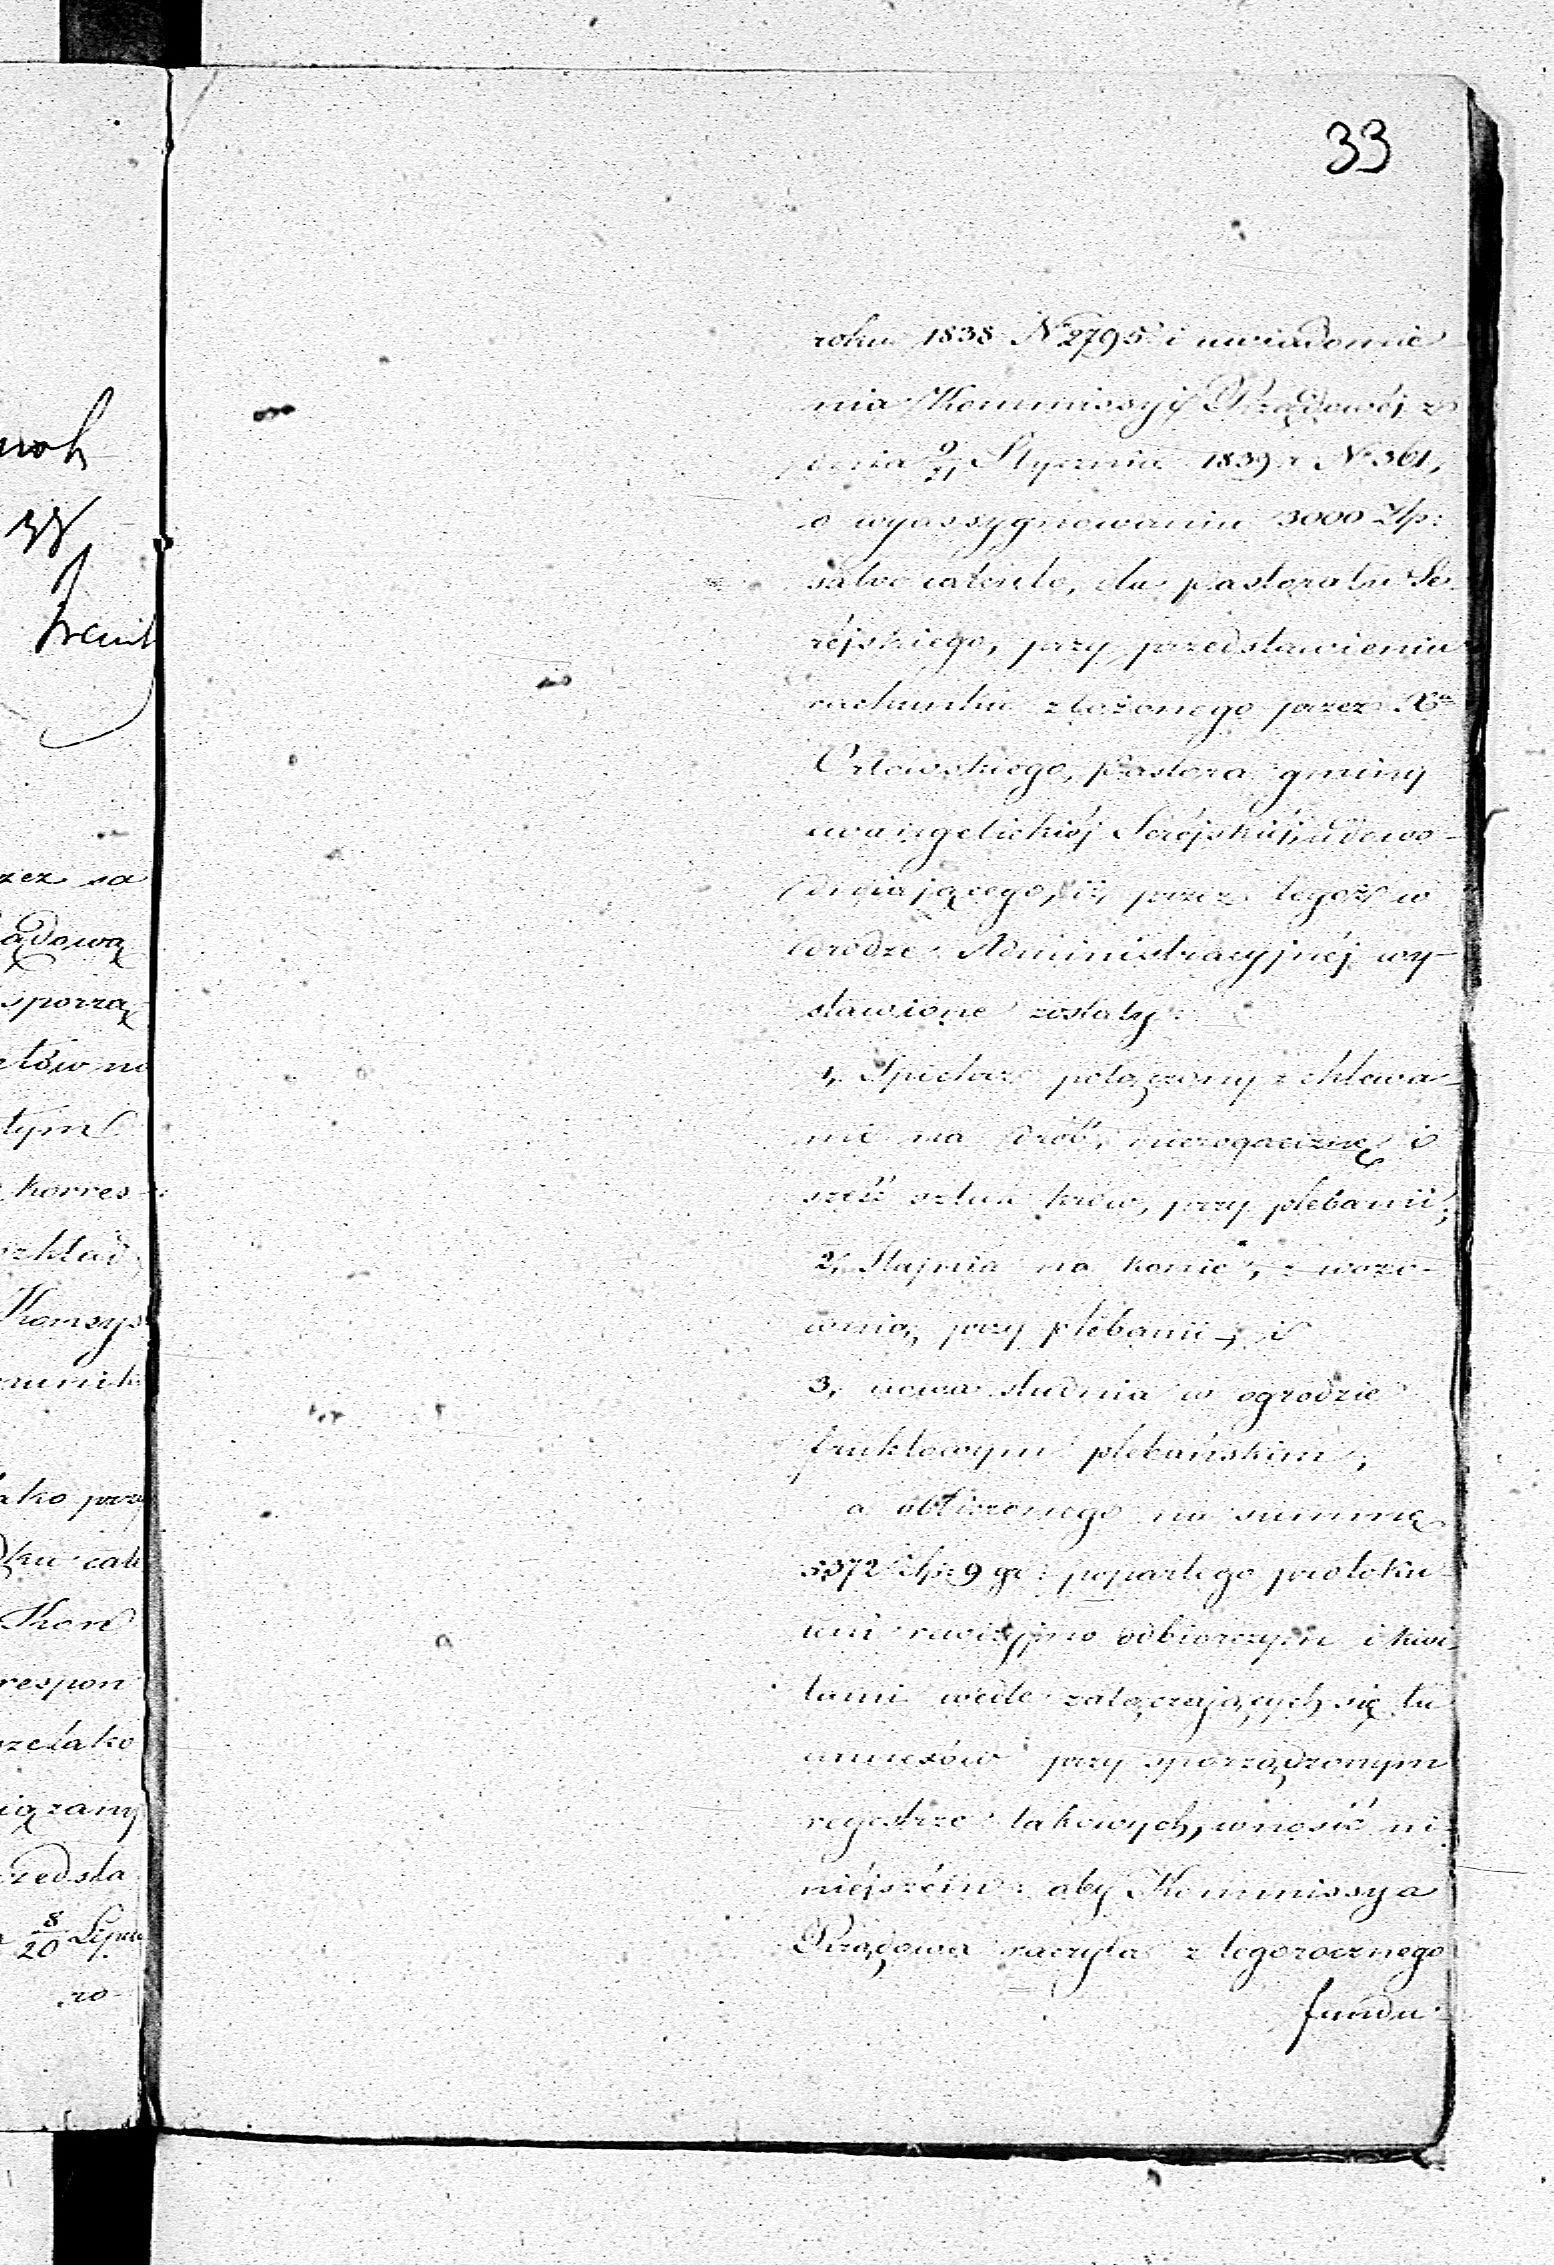 33
roku 1838 N 2795 i uwiadomie
nia Kommissyi Rządowéj z
dnia 9/21 Stycznia 1839 r N. 361,
o wyassygnowaniu 3000 Złp:
salvo calculo, dla pastoratu Se-
réjskiego, przy przedstawieniu
rachunku złożonego przez Xa
Orłowskiego, Pastora gminy
ewangelickiéj Seréjskiéj, udowo-
dniającego, iż, przez tegoż w
drodze Administracyjnéj wy-
stawione zostały:
1, Spichrz połączony z chlewa-
mi na drób, nierogaciznę i
sześć sztuk krów, przy plebanii;
2, Stajnia na konie, z wozo-
wnią, przy plebanii, i
3, nowa studnia w ogrodzie
fruktowym plebańskim,
a obliczonego na summę
3372 Złp: 9 gr: popartego protoku-
łem rewizyjno odbiorczym i kwi-
tami wedle załączających się tu
annexów przy sporządzonym
regestrze takowych, wnosić ni-
niéjszém: aby Kommissya
Rządowa raczyła z tegorocznego
fundu-
zez sa
ądową
sporzą
tów na
tym
korres-
ozkład
Konsys
ako prze
Kon
respon
iązany
zedsta
8/20 Lipca
ro-